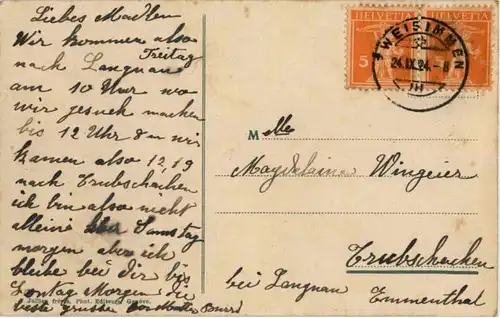 Liebes Madlen
Wir kommen also
Freitag
nach Langnau
am 10 Uhr wo
wir gesuch machen
bis 12 Uhr & wir
kamen also 12,19
nach Trubschachen
ich bin also nicht
alleine Samstag
morgen aber ich
bleibe bei dir bis
Sontag Morgen
beste grüsse
Jullien frères, Phot. Editeurs, Genève.
HELVETIA HELVETIA
5
ZWEISIMMEN
24.IX.24.-8
Mlle
Magdeleine Wingeier
Trubschachen
bei Langnau
Emmenthal